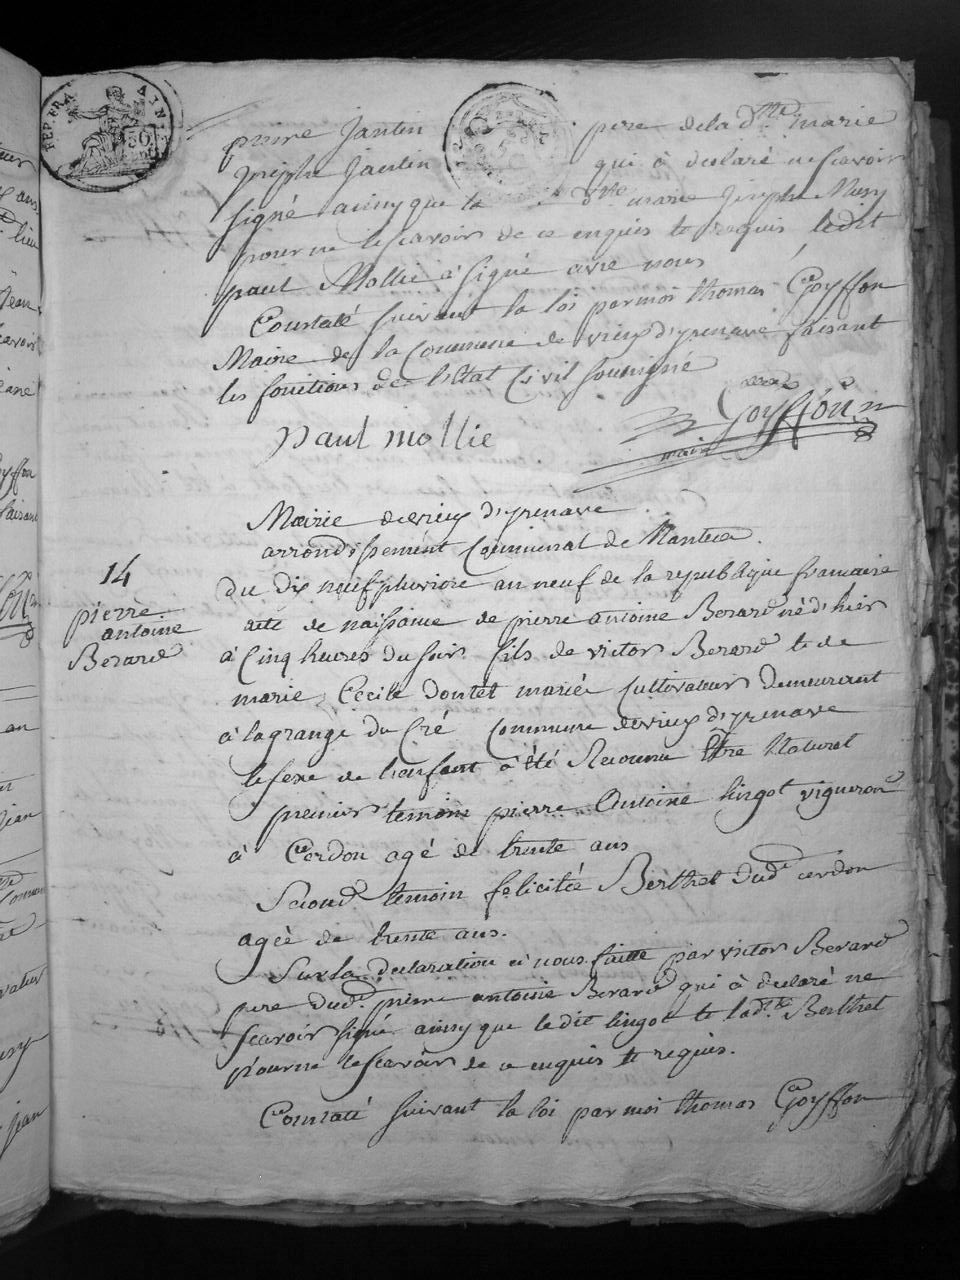 REP. FRA AIN
pierre Jantin père de la dte marie
Joseph Jantin qui à declaré ne scavoir
signé ainsy que la dte marie Joseph Mury
pour ne le scavoir de ce enquis et requis ledit
paul Mollie à signé avec nous
Constaté suivant la loi par moi thomas Goyffon
Maire de la Commune de vieux d'yzenave faisant
les fonctions de l'Etat Civil soussigné
Goyffon
paul mollie
maire
Mairie de vieux d'yzenave
arrondissement Communal de Nantua.
14
du dix neuf pluviose an neuf de la republique francaise
pierre
antoine
Berard
acte de naissance de pierre antoine Berard né d'hier
à Cinq heures du soir fils de victor Berard et de
marie Cécile dontet mariée Cultivateurs demeurant
à la grange du Cré Commune de vieux d'yzenave
le sexe de l'enfant à été Reconnu Etre Naturel
premier temoin pierre Antoine lingot vigneron
à Cerdon agé de trente ans
Second temoin felicitée Berthet dud. cerdon
agée de trente ans.
Sur la declaration à nous faitte par victor Berard
pere dud. pierre antoine Berard qui à declaré ne
scavoir signé ainsy que ledit lingot et lad.te Berthet
pour ne le scavoir de ce enquis et requis.
Constaté suivant la loi par moi thomas Goyffon